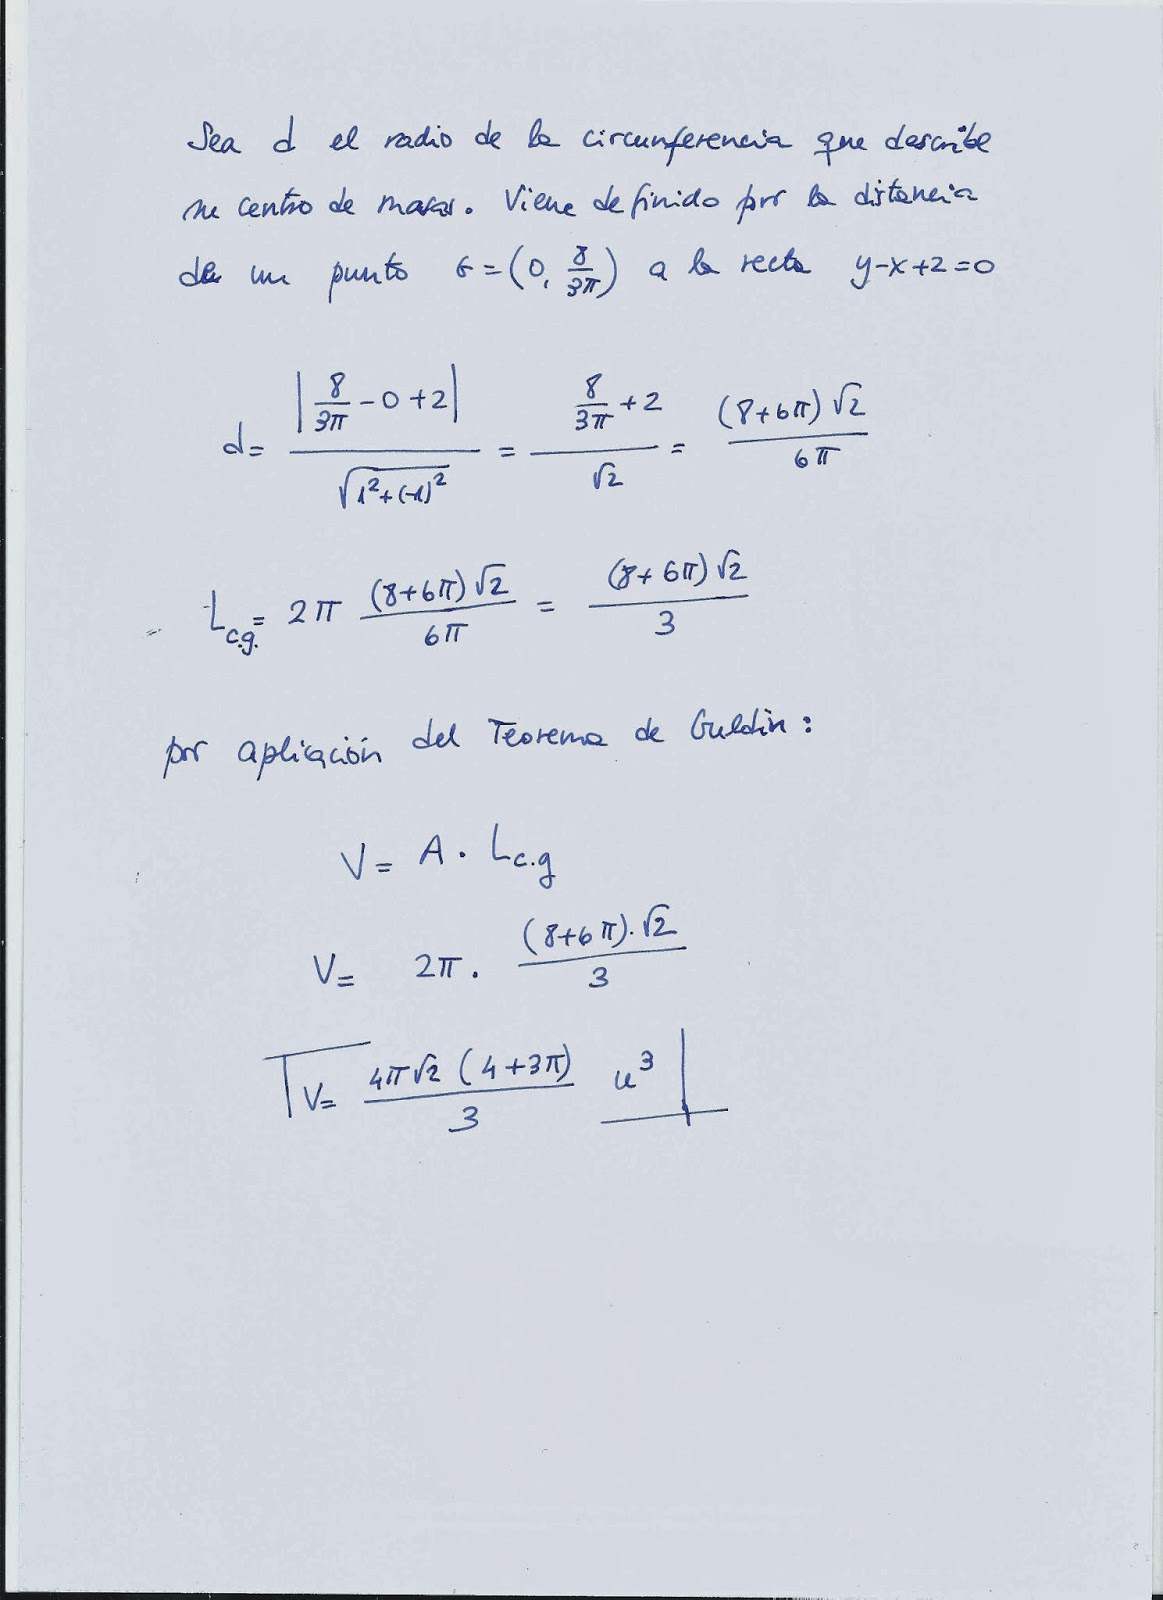 Sea d el radio de la circunferencia que describe
su centro de masas. Viene definido por la distancia
de un punto G = (0, 8/3π) a la recta y-x+2=0
d = |8/3π - 0 + 2| / √(1² + (-1)²) = (8/3π + 2) / √2 = (8+6π)√2 / 6π
L c.g. = 2π (8+6π)√2 / 6π = (8+6π)√2 / 3
por aplicación del Teorema de Guldin:
V = A · L c.g
V = 2π · (8+6π)·√2 / 3
V = 4π√2 (4+3π) / 3 u³